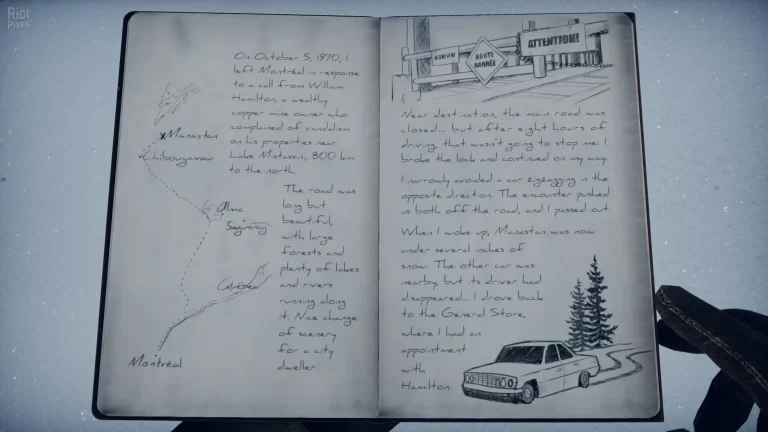 Riot
Pixels
On October 5, 1970, I
left Montréal in response
to a call from William
Hamilton, a wealthy
copper mine owner who
complained of vandalism
on his properties near
Lake Mistassini, 800 km
to the north.
The road was
long but
beautiful,
with large
forests and
plenty of lakes
and rivers
running along
it. Nice change
of scenery
for a city
dweller.
Manastan
Chibougamau
Alma
Saguenay
Québec
Montréal
ATTENTION!
ROUTE
BARRÉE
Near destination, the main road was
closed... but after eight hours of
driving, that wasn't going to stop me! I
broke the lock and continued on my way.
I narrowly avoided a car zigzagging in the
opposite direction. The encounter pushed
us both off the road, and I passed out.
When I woke up, Manastan was now
under several inches of
snow. The other car was
nearby, but its driver had
disappeared... I drove back
to the General Store,
where I had an
appointment
with
Hamilton.